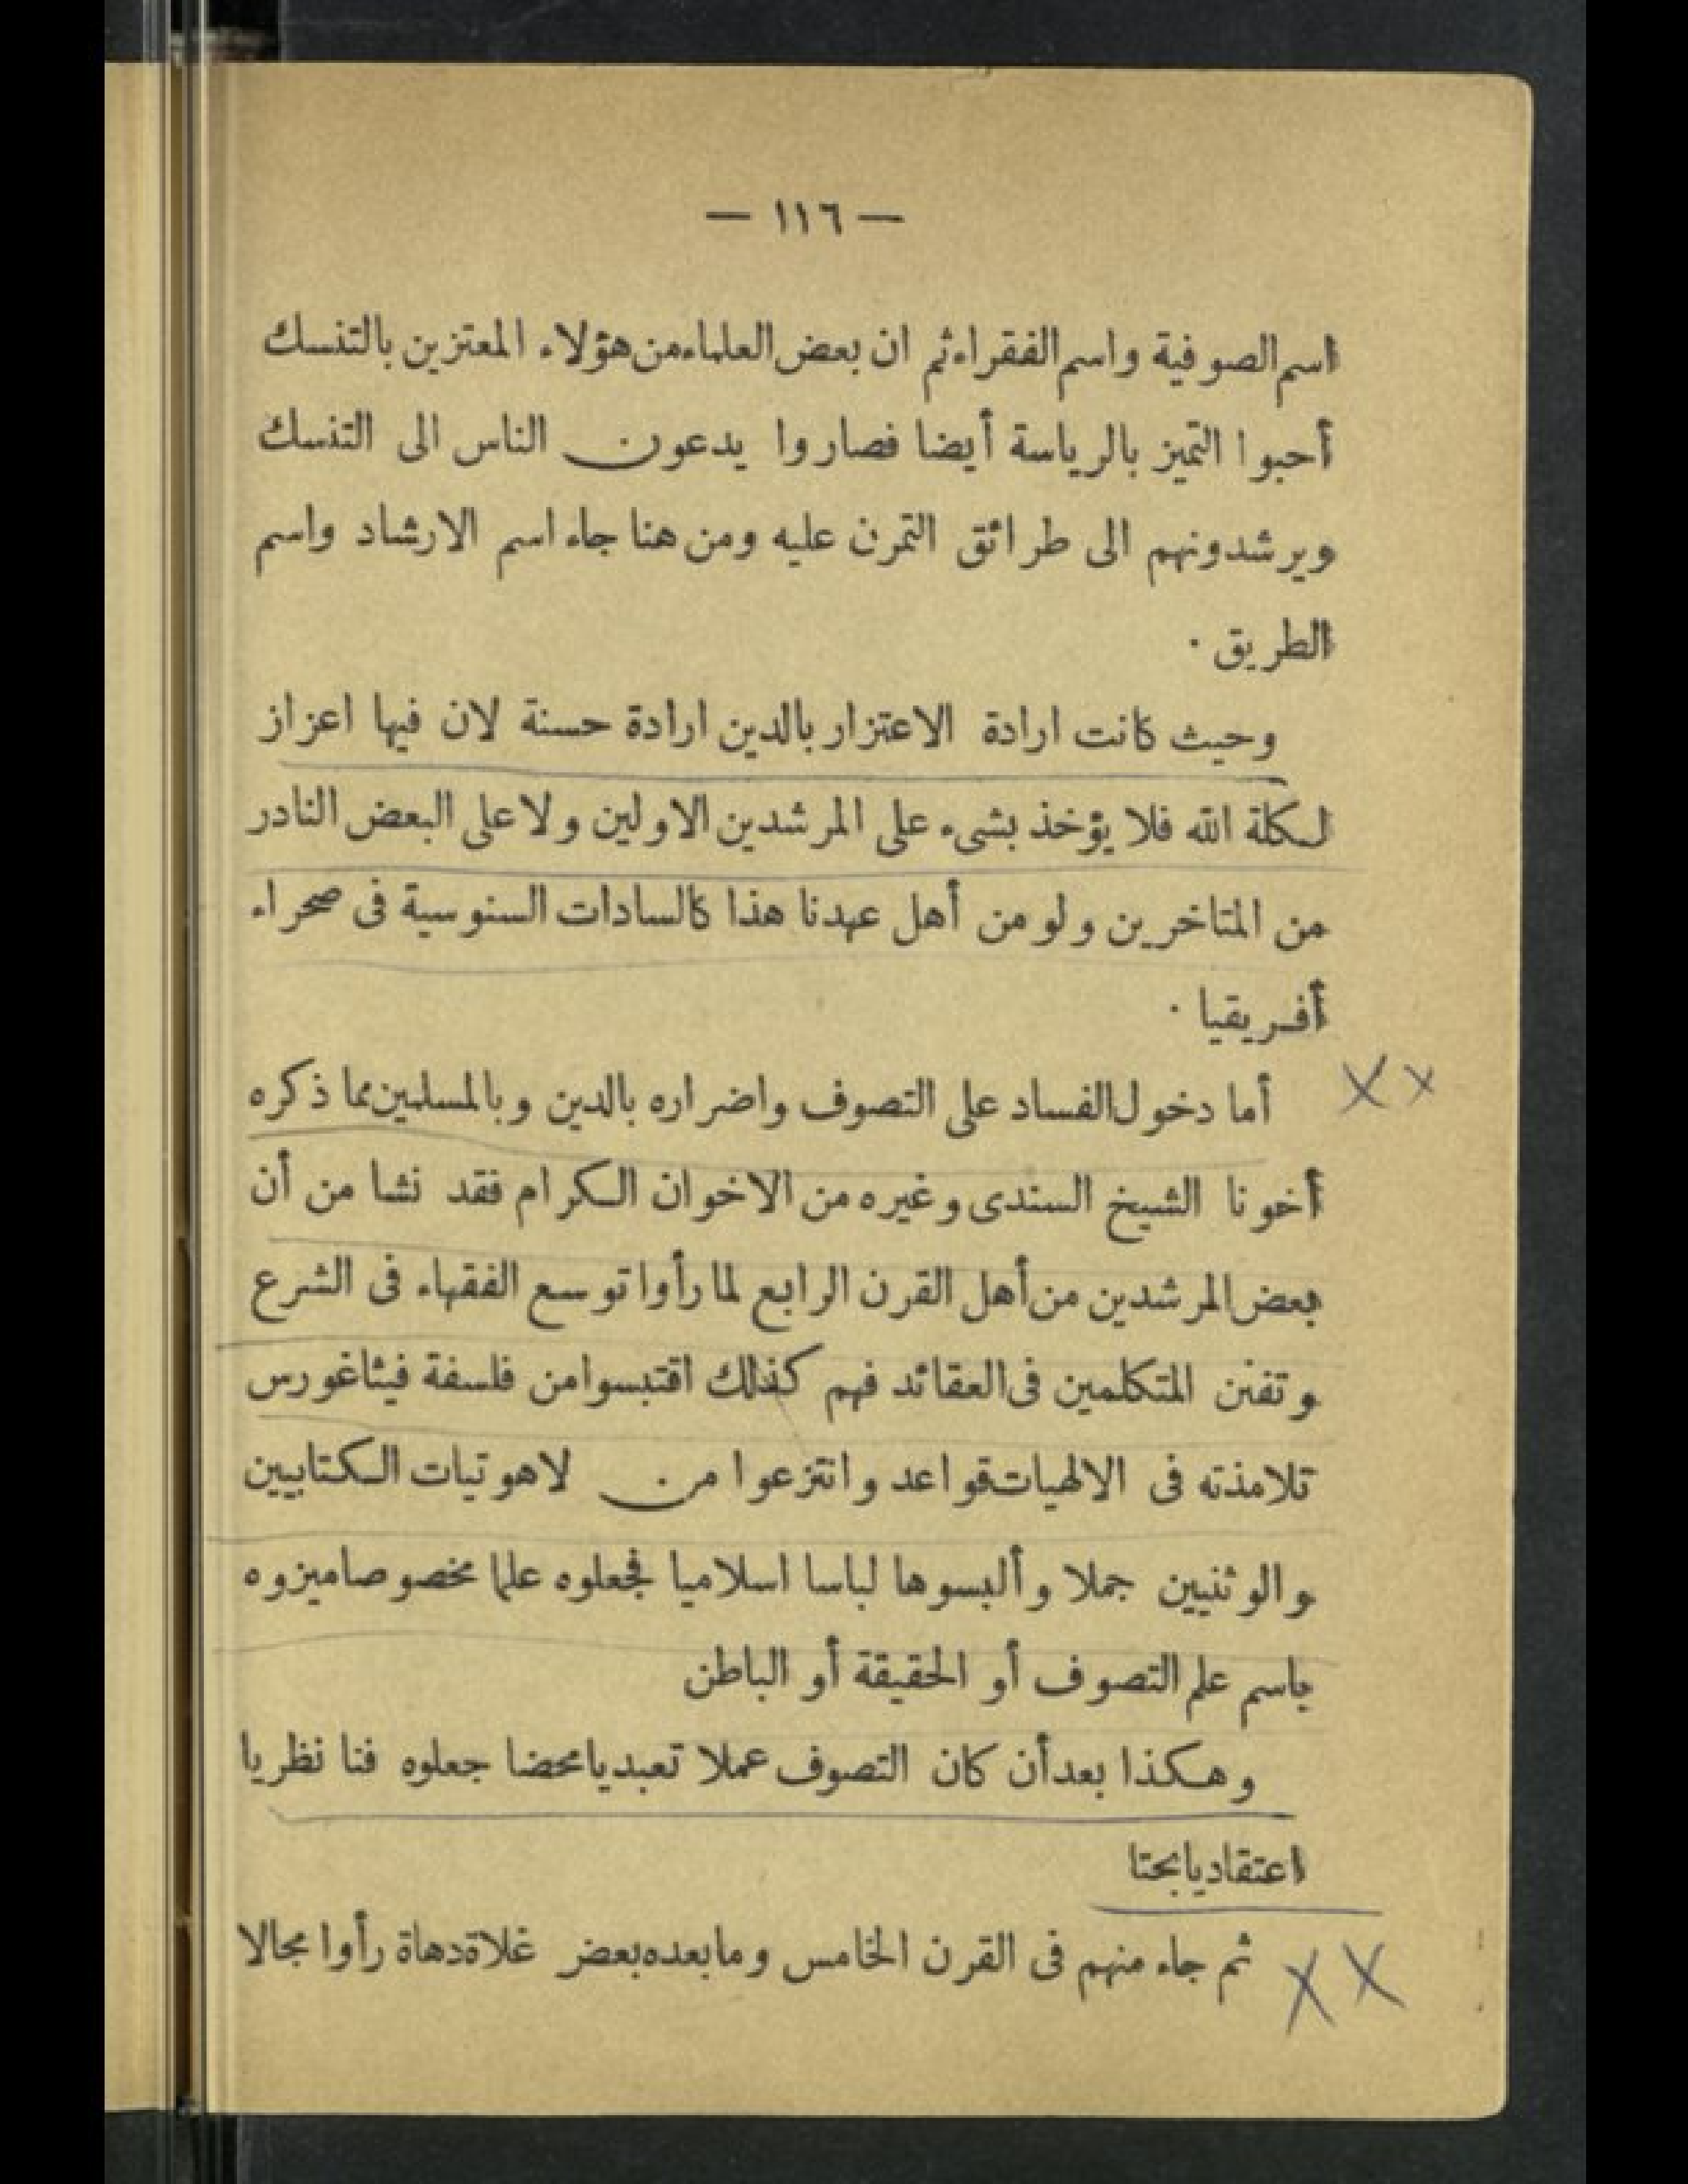 — ١١٦ —
اسم الصوفية واسم الفقراء ثم ان بعض العلماء من هؤلاء المعتزين بالتنسك
أحبوا التميز بالرياسة أيضا فصاروا يدعون الناس الى التنسك
ويرشدونهم الى طرائق التمرن عليه ومن هنا جاء اسم الارشاد واسم
الطريق .
وحيث كانت ارادة الاعتزار بالدين ارادة حسنة لان فيها اعزاز
لكلمة الله فلا يؤخذ بشيء على المرشدين الاولين ولا على البعض النادر
من المتاخرين ولو من أهل عهدنا هذا كالسادات السنوسية فى صحراء
أفريقيا .
أما دخول الفساد على التصوف واضراره بالدين وبالمسلمين مما ذكره
أخونا الشيخ السندى وغيره من الاخوان الكرام فقد نشا من أن
بعض المرشدين من أهل القرن الرابع لما رأوا توسع الفقهاء فى الشرع
وتفنن المتكلمين فى العقائد فهم كذلك اقتبسوا من فلسفة فيثاغورس
تلامذته فى الالهيات قواعد وانتزعوا من لاهوتيات الكتابيين
والوثنيين جملا وألبسوها لباسا اسلاميا فجعلوه علما مخصوصا ميزوه
باسم علم التصوف أو الحقيقة أو الباطن
وهكذا بعد أن كان التصوف عملا تعبديا محضا جعلوه فنا نظريا
اعتقاديا بحتا
ثم جاء منهم فى القرن الخامس وما بعده بعض غلاة دهاة رأوا مجالا